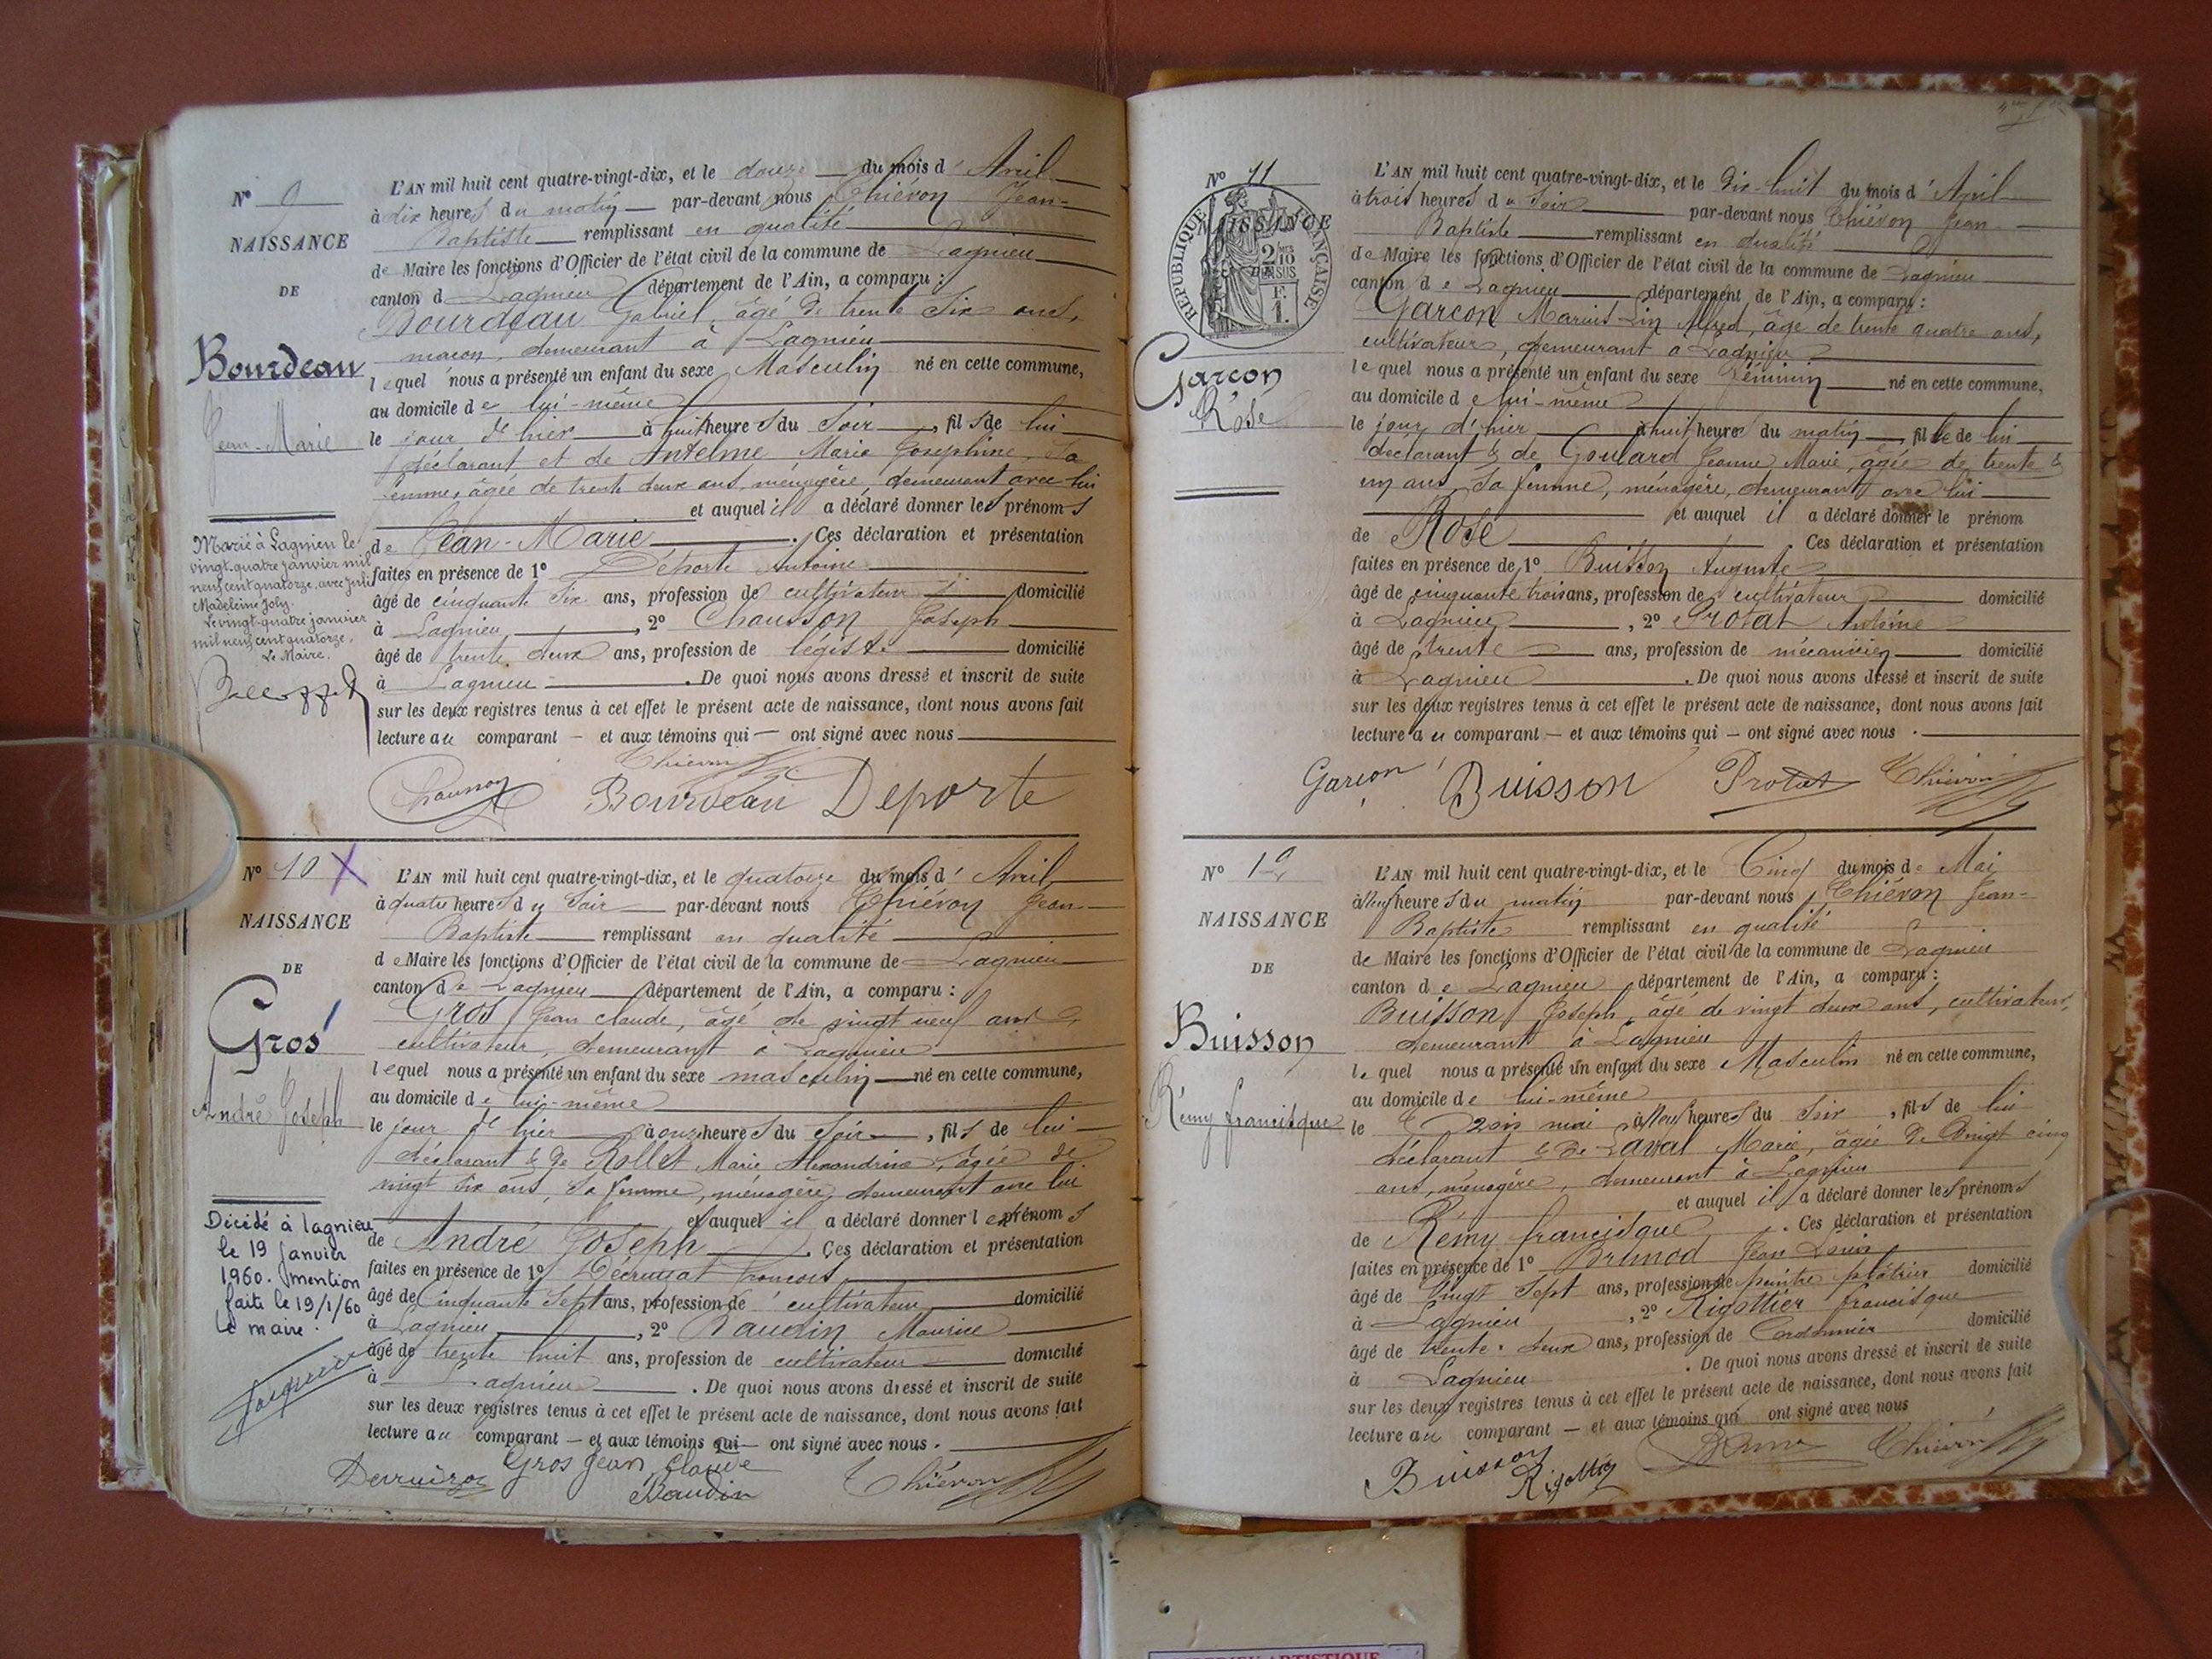 Nº 9
NAISSANCE
DE
Bourdeau
Jean-Marie
Marié à Lagnieu le
vingt-quatre janvier mil
neuf cent quatorze, avec
Madeleine Joly.
Le vingt-quatre janvier
mil neuf cent quatorze.
Le Maire.
L'AN mil huit cent quatre-vingt-dix, et le douze du mois d'Avril
à dix heures du matin par-devant nous Thiévon Jean-
Baptiste remplissant en qualité
de Maire les fonctions d'Officier de l'état civil de la commune de Lagnieu
canton de Lagnieu département de l'Ain, a comparu :
Bourdeau Gabriel, âgé de trente six ans,
maçon, demeurant à Lagnieu
lequel nous a présenté un enfant du sexe Masculin né en cette commune,
au domicile de lui-même
le jour d'hier à huit heures du soir, fils de lui
déclarant et de Antelme Marie Joséphine, sa
femme, âgée de trente deux ans, ménagère, demeurant avec lui
et auquel il a déclaré donner les prénoms
de Jean-Marie. Ces déclaration et présentation
faites en présence de 1º Déporte Antoine
âgé de cinquante six ans, profession de cultivateur domicilié
à Lagnieu, 2º Chausson Joseph
âgé de trente deux ans, profession de légiste domicilié
à Lagnieu. De quoi nous avons dressé et inscrit de suite
sur les deux registres tenus à cet effet le présent acte de naissance, dont nous avons fait
lecture au comparant — et aux témoins qui — ont signé avec nous
Thiévon
Chausson Bourdeau Deporte
Nº 10 X
NAISSANCE
DE
Gros
André Joseph
Décédé à Lagnieu
le 19 janvier
1960. mention
faite le 19/1/60
Le maire.
L'AN mil huit cent quatre-vingt-dix, et le quatorze du mois d'Avril
à quatre heures du soir par-devant nous Thiévon Jean-
Baptiste remplissant en qualité
de Maire les fonctions d'Officier de l'état civil de la commune de Lagnieu
canton de Lagnieu département de l'Ain, a comparu :
Gros Jean Claude, âgé de vingt neuf ans
cultivateur, demeurant à Lagnieu
lequel nous a présenté un enfant du sexe masculin né en cette commune,
au domicile de lui-même
le jour d'hier à onze heures du soir, fils de lui
déclarant & de Rollet Marie Alexandrine, âgée de
vingt six ans, sa femme, ménagère, demeurant avec lui
et auquel il a déclaré donner les prénoms
de André Joseph. Ces déclaration et présentation
faites en présence de 1º François
âgé de Cinquante Sept ans, profession de cultivateur domicilié
à Lagnieu, 2º Baudin Maurice
âgé de trente huit ans, profession de cultivateur domicilié
à Lagnieu. De quoi nous avons dressé et inscrit de suite
sur les deux registres tenus à cet effet le présent acte de naissance, dont nous avons fait
lecture au comparant — et aux témoins qui — ont signé avec nous.
Gros Jean Claude
Baudin Thiévon
Nº 11
NAISSANCE
RÉPUBLIQUE FRANÇAISE
2/10
EN SUS
F.
1.
Garcon
Rose
L'AN mil huit cent quatre-vingt-dix, et le Dix-huit du mois d'Avril
à trois heures du soir par-devant nous Thiévon Jean
Baptiste remplissant en qualité
de Maire les fonctions d'Officier de l'état civil de la commune de Lagnieu
canton de Lagnieu département de l'Ain, a comparu :
Garcon Marius Lin Alfred, âgé de trente quatre ans,
cultivateur, demeurant à Lagnieu
lequel nous a présenté un enfant du sexe Féminin né en cette commune,
au domicile de lui-même
le jour d'hier à huit heures du matin, fille de lui
déclarant & de Goulard Jeanne Marie, âgée de trente &
un ans, sa femme, ménagère, demeurant avec lui
et auquel il a déclaré donner le prénom
de Rose. Ces déclaration et présentation
faites en présence de 1º Buisson Auguste
âgé de cinquante trois ans, profession de cultivateur domicilié
à Lagnieu, 2º Protat Antoine
âgé de trente ans, profession de mécanicien domicilié
à Lagnieu. De quoi nous avons dressé et inscrit de suite
sur les deux registres tenus à cet effet le présent acte de naissance, dont nous avons fait
lecture au comparant — et aux témoins qui — ont signé avec nous.
Garcon Buisson Protat Thiévon
Nº 12
NAISSANCE
DE
Buisson
Rémy francisque
L'AN mil huit cent quatre-vingt-dix, et le Cinq du mois de Mai
à Neuf heures du matin par-devant nous Thiévon Jean-
Baptiste remplissant en qualité
de Maire les fonctions d'Officier de l'état civil de la commune de Lagnieu
canton de Lagnieu département de l'Ain, a comparu :
Buisson Joseph, âgé de vingt deux ans, cultivateur,
demeurant à Lagnieu
lequel nous a présenté un enfant du sexe Masculin né en cette commune,
au domicile de lui-même
le trois mai à Neuf heures du soir, fils de lui
déclarant & de Laval Marie, âgée de Vingt cinq
ans, ménagère, demeurant à Lagnieu
et auquel il a déclaré donner les prénoms
de Rémy francisque. Ces déclaration et présentation
faites en présence de 1º Brunod Jean Louis
âgé de Vingt Sept ans, profession de peintre plâtrier domicilié
à Lagnieu, 2º Rigottier francisque
âgé de trente deux ans, profession de Cordonnier domicilié
à Lagnieu. De quoi nous avons dressé et inscrit de suite
sur les deux registres tenus à cet effet le présent acte de naissance, dont nous avons fait
lecture au comparant — et aux témoins qui ont signé avec nous
Buisson Thiévon